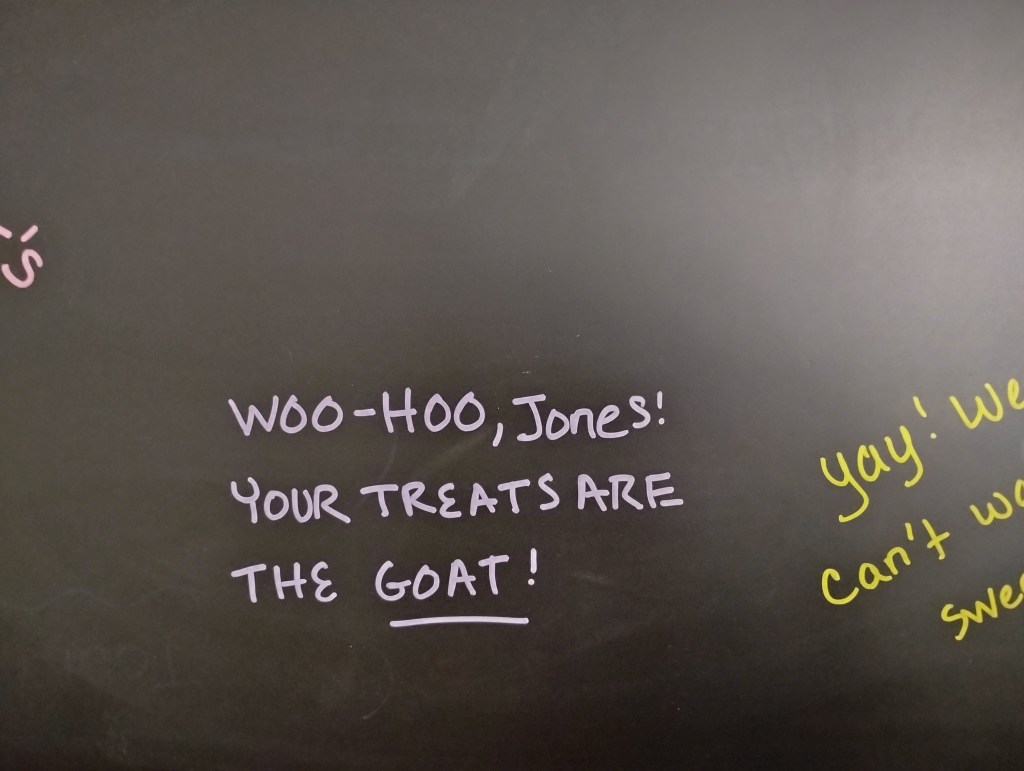 WOO-HOO, Jones!
YOUR TREATS ARE
THE GOAT!
yay! We
can't